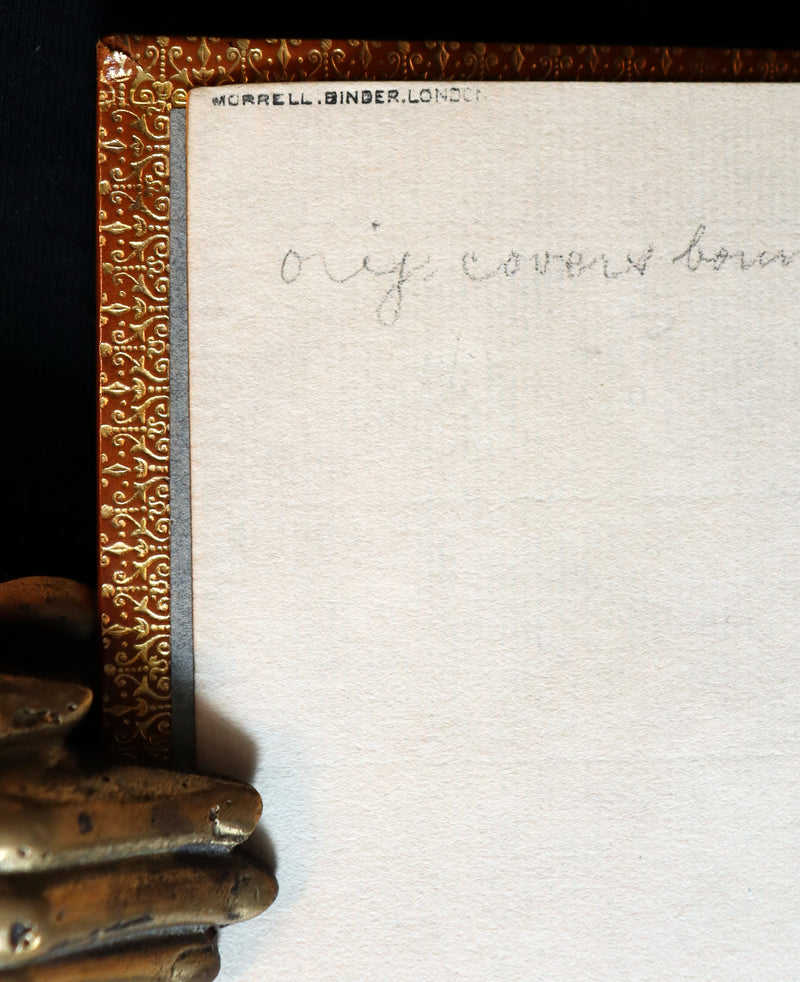 MORRELL.BINDER.LONDON
orig covers boun